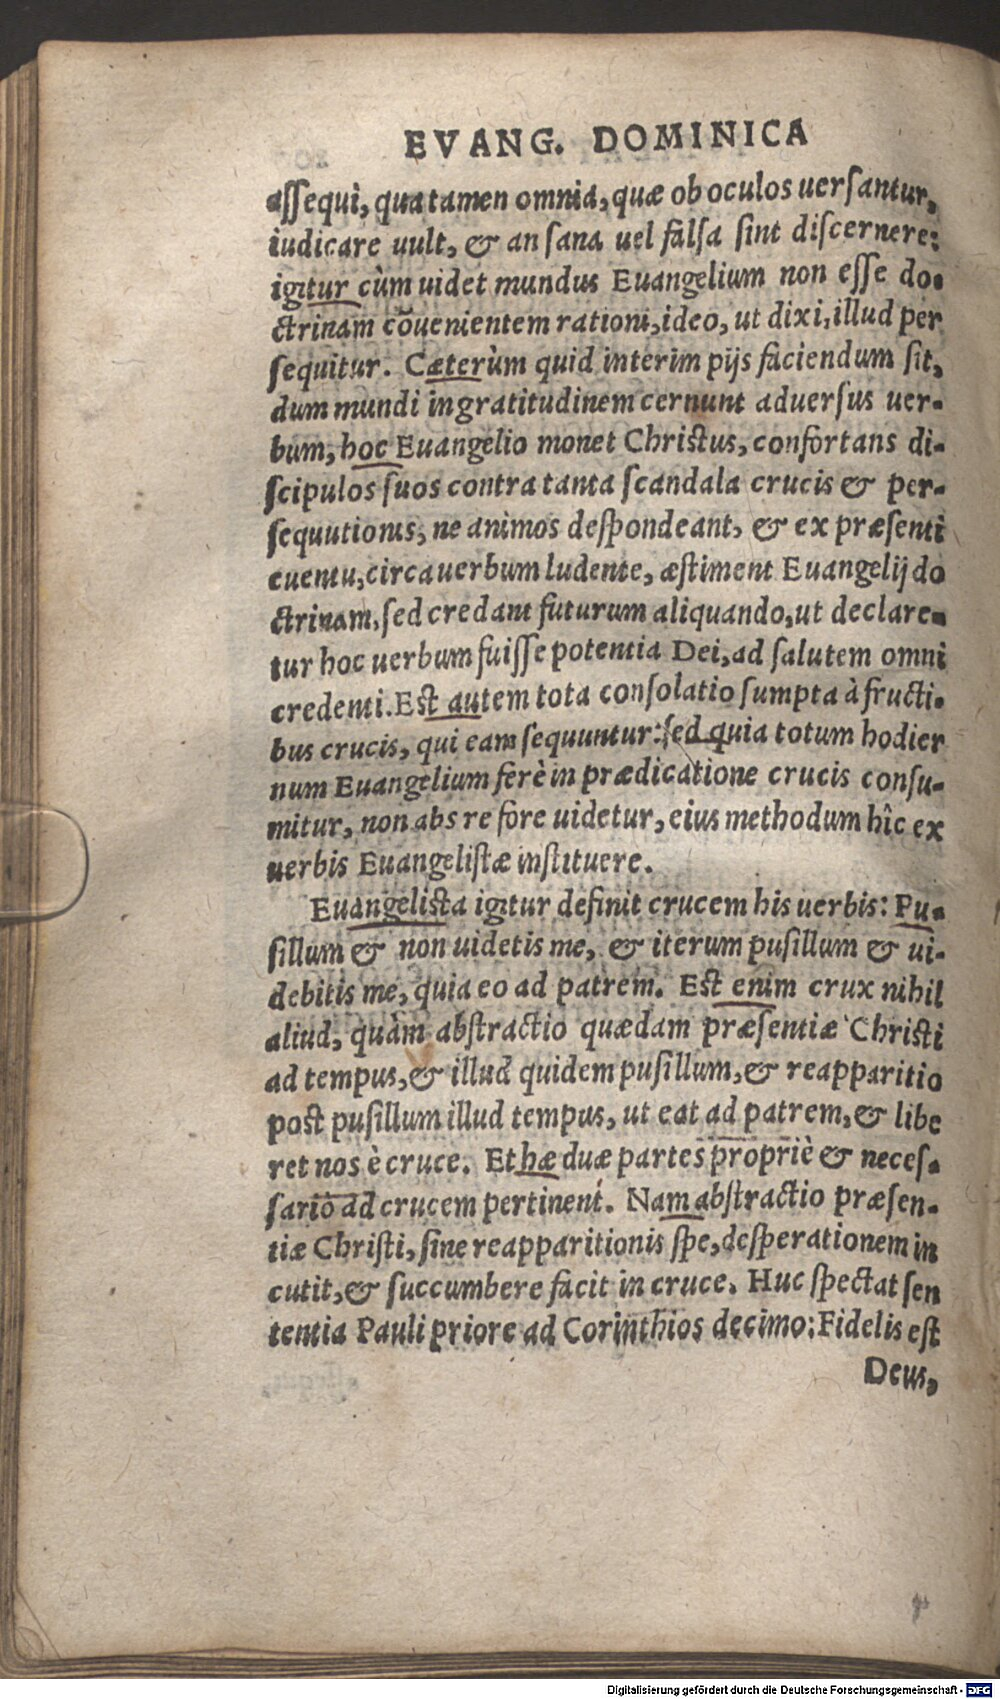 EVANG. DOMINICA
assequi, qua tamen omnia, quæ ob oculos uersantur,
iudicare uult, & an sana uel falsa sint discernere:
igitur cùm uidet mundus Euangelium non esse do-
ctrinam cōuenientem rationi, ideo, ut dixi, illud per
sequitur. Cæterùm quid interim pijs faciendum sit,
dum mundi ingratitudinem cernunt aduersus uer-
bum, hoc Euangelio monet Christus, confortans di-
scipulos suos contra tanta scandala crucis & per-
sequutionis, ne animos despondeant, & ex præsenti
euentu, circa uerbum ludente, æstiment Euangelij do
ctrinam, sed credant futurum aliquando, ut declare-
tur hoc uerbum fuisse potentia Dei, ad salutem omni
credenti. Est autem tota consolatio sumpta à fructi-
bus crucis, qui eam sequuntur: sed quia totum hodier
num Euangelium ferè in prædicatione crucis consu-
mitur, non abs re fore uidetur, eius methodum hîc ex
uerbis Euangelistæ instituere.
Euangelista igitur definit crucem his uerbis: Pu-
sillum & non uidetis me, & iterum pusillum & ui-
debitis me, quia eo ad patrem. Est enim crux nihil
aliud, quàm abstractio quædam præsentiæ Christi
ad tempus, & illud quidem pusillum, & reapparitio
post pusillum illud tempus, ut eat ad patrem, & libe
ret nos è cruce. Et hæ duæ partes propriè & neces-
sariò ad crucem pertinent. Nam abstractio præsen-
tiæ Christi, sine reapparitionis spe, desperationem in
cutit, & succumbere facit in cruce. Huc spectat sen
tentia Pauli priore ad Corinthios decimo: Fidelis est
Deus,
Digitalisierung gefördert durch die Deutsche Forschungsgemeinschaft - DFG